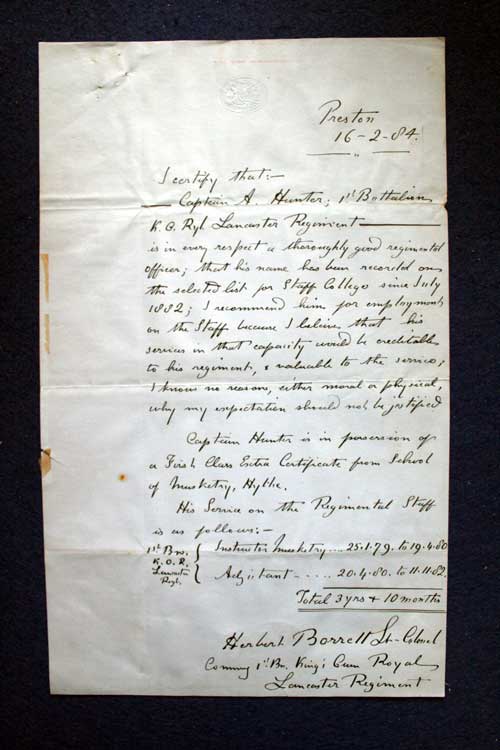 Preston
16-2-84.
I certify that:-
Captain A. Hunter; 1st Battalion
K. O. Ryl Lancaster Regiment
is in every respect a thoroughly good regimental
officer; that his name has been recorded on
the selected list for Staff College since July
1882; I recommend him for employment
on the Staff because I believe that his
services in that capacity would be creditable
to his regiment, & valuable to the service;
I know no reasons, either moral or physical,
why my expectation should not be justified
Captain Hunter is in possession of
a First Class Extra Certificate from School
of Musketry, Hythe.
His Service on the Regimental Staff
is as follows:-
1st Bn. K. O. R. Lancaster Regt. { Instructor Musketry .... 25.1.79. to 19.4.80
Adjutant ..... 20.4.80. to 11.11.82.
Total 3 yrs + 10 months
Herbert Borrett Lt-Colonel
Commg 1st Bn. King's Own Royal
Lancaster Regiment